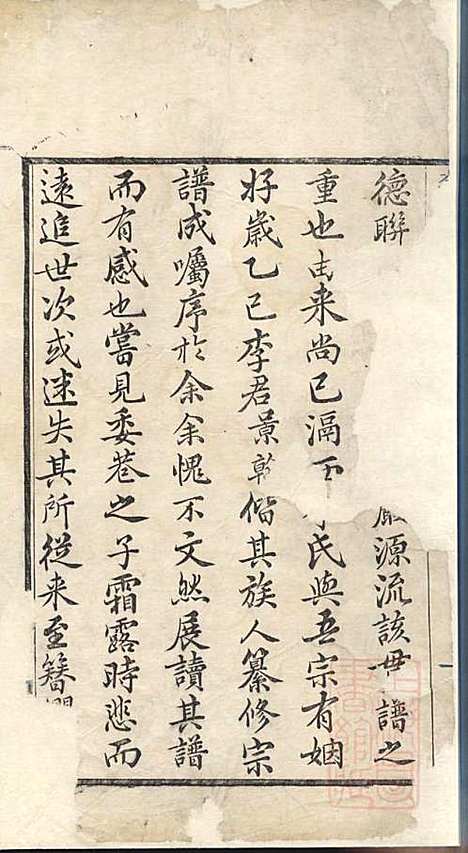 德聯源流該毋譜之
重也由来尚已滆氏與吾宗有姻
好歲乙巳李君景乾偕其族人纂修宗
譜成囑序於余余愧不文然展讀其譜
而有感也嘗見委巷之子霜露時悲而
遠追世次或迷失其所從来至簪